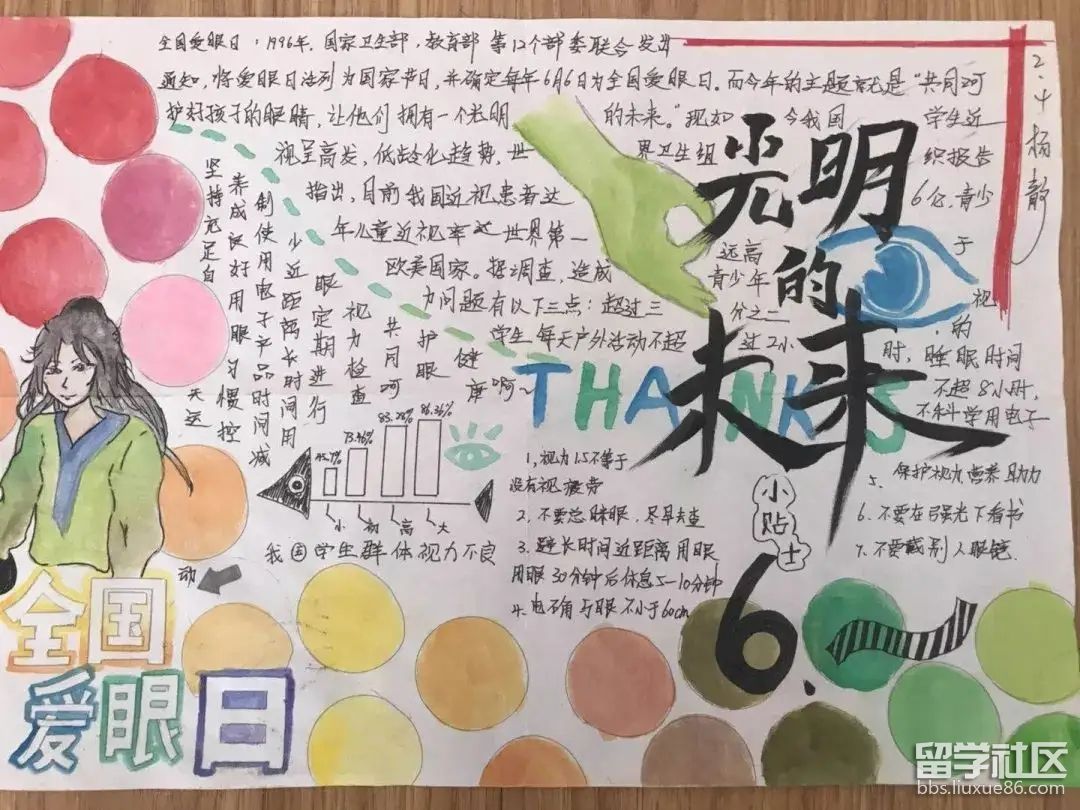 全国爱眼日，1996年，国家卫生部，教育部 第12个部委联合发出
通知，将爱眼日活列为国家节日，并确定每年6月6日为全国爱眼日。而今年的主题就是“共同呵
护好孩子的眼睛，让他们 拥有一个光明 的未来。”现如 今我国 学生近
视呈高发，低龄化趋势，世 界卫生组 织报告
指出，目前 我国近视患者达 6亿，青少
年儿童近视率达 世界第一 远高 于
欧美国家。据调查，造成 青少年 视
力问题有以下三点：超过三 分之二 的
学生 每天户外活动不超 过2小 时，睡眠时间
不超 8小时，
不科学用电子
2.4 杨静
光明
的
未来
THANKS
坚持充足白天运
动
养成良好用眼习惯控
制使用电子产品时间减
少近距离长时间用
眼定期进行
视力检查
共同呵
护眼健
康啊~
45.7%
73.46%
83.28%
86.36%
小 初 高 大
我国学生群体视力不良
小贴士
1、视力1.5不等于
没有视疲劳
2、不要总眯眼，尽早去查
3、避长时间近距离用眼
用眼30分钟后休息5-10分钟
4、与眼不小于60cm
5、保护视力营养助力
6、不要在强光下看书
7、不要戴别人眼镜
6.
全国
爱眼日
留学社区
bbs.liuxue86.com